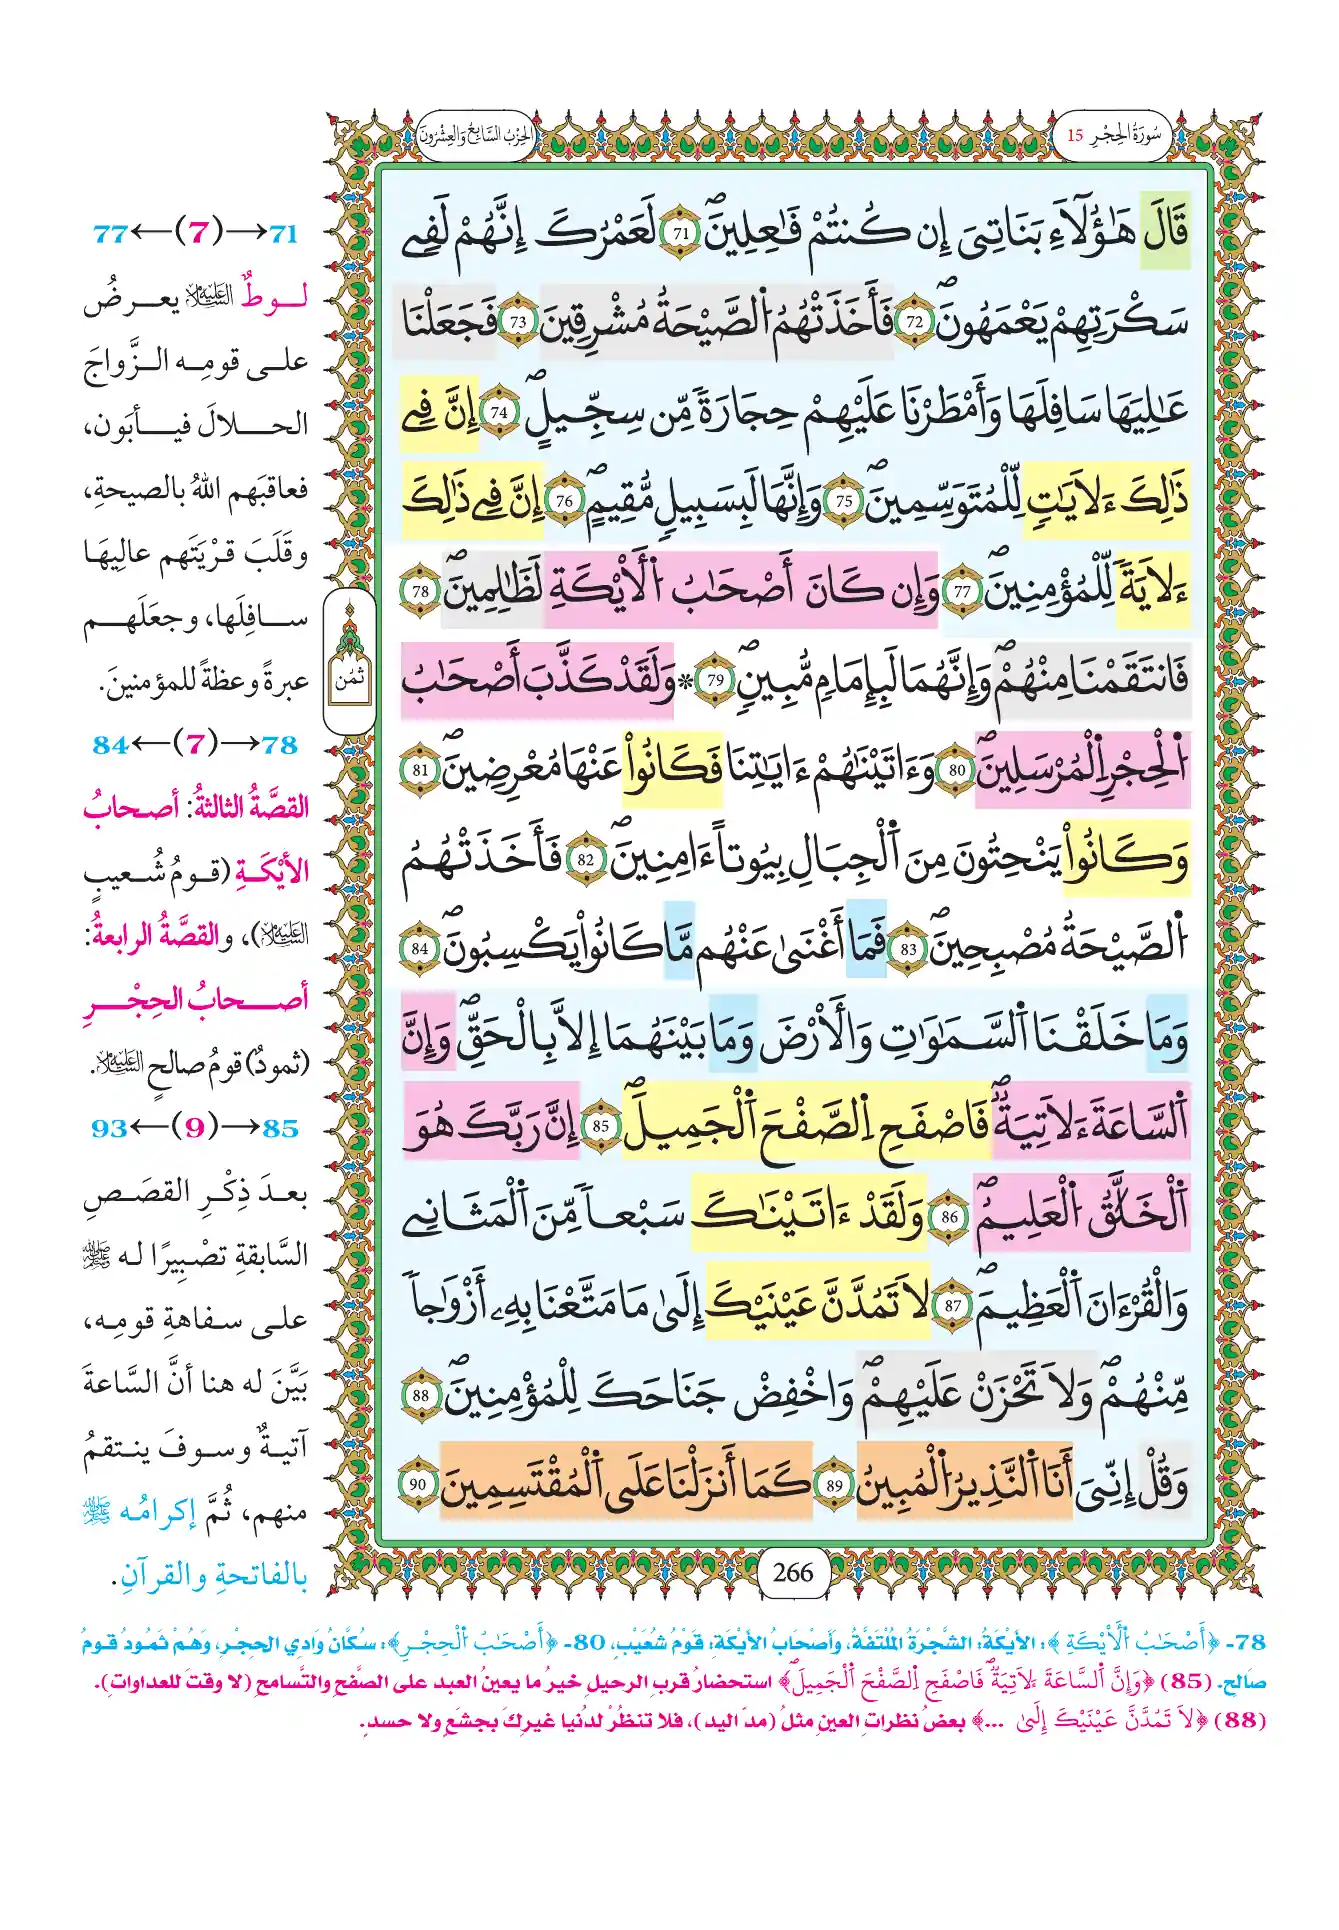 سُورَةُ الحِجْرِ 15
الحِزْبُ السَّابِعُ وَالعِشْرُونَ
قَالَ هَٰٓؤُلَآءِ بَنَاتِىَ إِن كُنتُمْ فَٰعِلِينَۖ 71 لَعَمْرُكَ إِنَّهُمْ لَفِے
سَكْرَتِهِمْ يَعْمَهُونَۖ 72 فَأَخَذَتْهُمُ اُ۬لصَّيْحَةُ مُشْرِقِينَ 73 فَجَعَلْنَا
عَٰلِيَهَا سَافِلَهَا وَأَمْطَرْنَا عَلَيْهِمْ حِجَارَةٗ مِّن سِجِّيلٍۖ 74 إِنَّ فِے
ذَٰلِكَ ءَلَايَٰتٖ لِّلْمُتَوَسِّمِينَۖ 75 وَإِنَّهَا لَبِسَبِيلٖ مُّقِيمٍۖ 76 إِنَّ فِے ذَٰلِكَ
ءَلَايَةٗ لِّلْمُؤْمِنِينَۖ 77 وَإِن كَانَ أَصْحَٰبُ اُ۬لْأَيْكَةِ لَظَٰلِمِينَۖ 78
فَانتَقَمْنَا مِنْهُمْۖ وَإِنَّهُمَا لَبِإِمَامٖ مُّبِينٖۖ 79 * وَلَقَدْ كَذَّبَ أَصْحَٰبُ
اُ۬لْحِجْرِ اِ۬لْمُرْسَلِينَۖ 80 وَءَاتَيْنَٰهُمْ ءَايَٰتِنَا فَكَانُواْ عَنْهَا مُعْرِضِينَۖ 81
وَكَانُواْ يَنْحِتُونَ مِنَ اَ۬لْجِبَالِ بِيُوتاً ءَامِنِينَۖ 82 فَأَخَذَتْهُمُ
اُ۬لصَّيْحَةُ مُصْبِحِينَۖ 83 فَمَا أَغْنَىٰ عَنْهُم مَّا كَانُواْ يَكْسِبُونَۖ 84
وَمَا خَلَقْنَا اَ۬لسَّمَٰوَٰتِ وَالْأَرْضَ وَمَا بَيْنَهُمَا إِلَّا بِالْحَقِّۖ وَإِنَّ
اَ۬لسَّاعَةَ ءَلَاتِيَةٞۖ فَاصْفَحِ اِ۬لصَّفْحَ اَ۬لْجَمِيلَۖ 85 إِنَّ رَبَّكَ هُوَ
اَ۬لْخَلَّٰقُ اُ۬لْعَلِيمُۖ 86 وَلَقَدْ ءَاتَيْنَٰكَ سَبْعاٗ مِّنَ اَ۬لْمَثَانِے
وَالْقُرْءَانَ اَ۬لْعَظِيمَۖ 87 لَا تَمُدَّنَّ عَيْنَيْكَ إِلَىٰ مَا مَتَّعْنَا بِهِۦ أَزْوَٰجاٗ
مِّنْهُمْۖ وَلَا تَحْزَنْ عَلَيْهِمْۖ وَاخْفِضْ جَنَاحَكَ لِلْمُؤْمِنِينَۖ 88
وَقُلْ إِنِّىَ أَنَا اَ۬لنَّذِيرُ اُ۬لْمُبِينُ 89 كَمَا أَنزَلْنَا عَلَى اَ۬لْمُقْتَسِمِينَ 90
ثُمُن
266
71→(7)←77
لــوطٌ عليه السلام يعــرضُ
علـى قومِـه الـزَّواجَ
الحــلالَ فيــأبَون،
فعاقبَهم اللهُ بالصيحةِ،
وقَلَبَ قرْيَتَهم عالِيهَا
سـافِلَها، وجعلَهــم
عبرةً وعظةً للمؤمنينَ.
78→(7)←84
القصَّةُ الثالثةُ: أصحابُ
الأيْكَـةِ (قـومُ شُـعيبٍ
عليه السلام)، والقصَّةُ الرابعةُ:
أصـــحابُ الحِجْـــرِ
(ثمودٌ) قومُ صالحٍ عليه السلام.
85→(9)←93
بعـدَ ذِكْـرِ القصَـصِ
السَّابقةِ تصْبِيرًا لـه ﷺ
علـى سـفاهةِ قومِـه،
بَيَّنَ له هنا أنَّ السَّاعةَ
آتيـةٌ وسـوفَ ينـتقمُ
منهم، ثُمَّ إكرامُـه ﷺ
بالفاتحةِ والقرآنِ.
78- ﴿أَصْحَٰبُ اُ۬لْأَيْكَةِ﴾: الأيْكَةُ: الشَّجْرَةُ المُلْتَفَّةُ، وَأصْحَابُ الأيْكَةِ: قَوْمُ شُعَيْبٍ، 80- ﴿أَصْحَٰبُ اُ۬لْحِجْرِ﴾: سُكَّانُ وَادِي الحِجْرِ، وَهُمْ ثَمُودُ قومُ
صَالحٍ. (85) ﴿وَإِنَّ اَ۬لسَّاعَةَ ءَلَاتِيَةٞۖ فَاصْفَحِ اِ۬لصَّفْحَ اَ۬لْجَمِيلَۖ﴾ استحضارُ قربِ الرحيلِ خيرُ ما يعينُ العبد على الصَّفحِ والتَّسامحِ (لا وقتَ للعداوات).
(88) ﴿لَا تَمُدَّنَّ عَيْنَيْكَ إِلَىٰ ...﴾ بعضُ نظراتِ العينِ مثلُ (مدَ اليد)، فلا تنظُرْ لدُنيا غيرِكَ بجشَعٍ ولا حسدٍ.